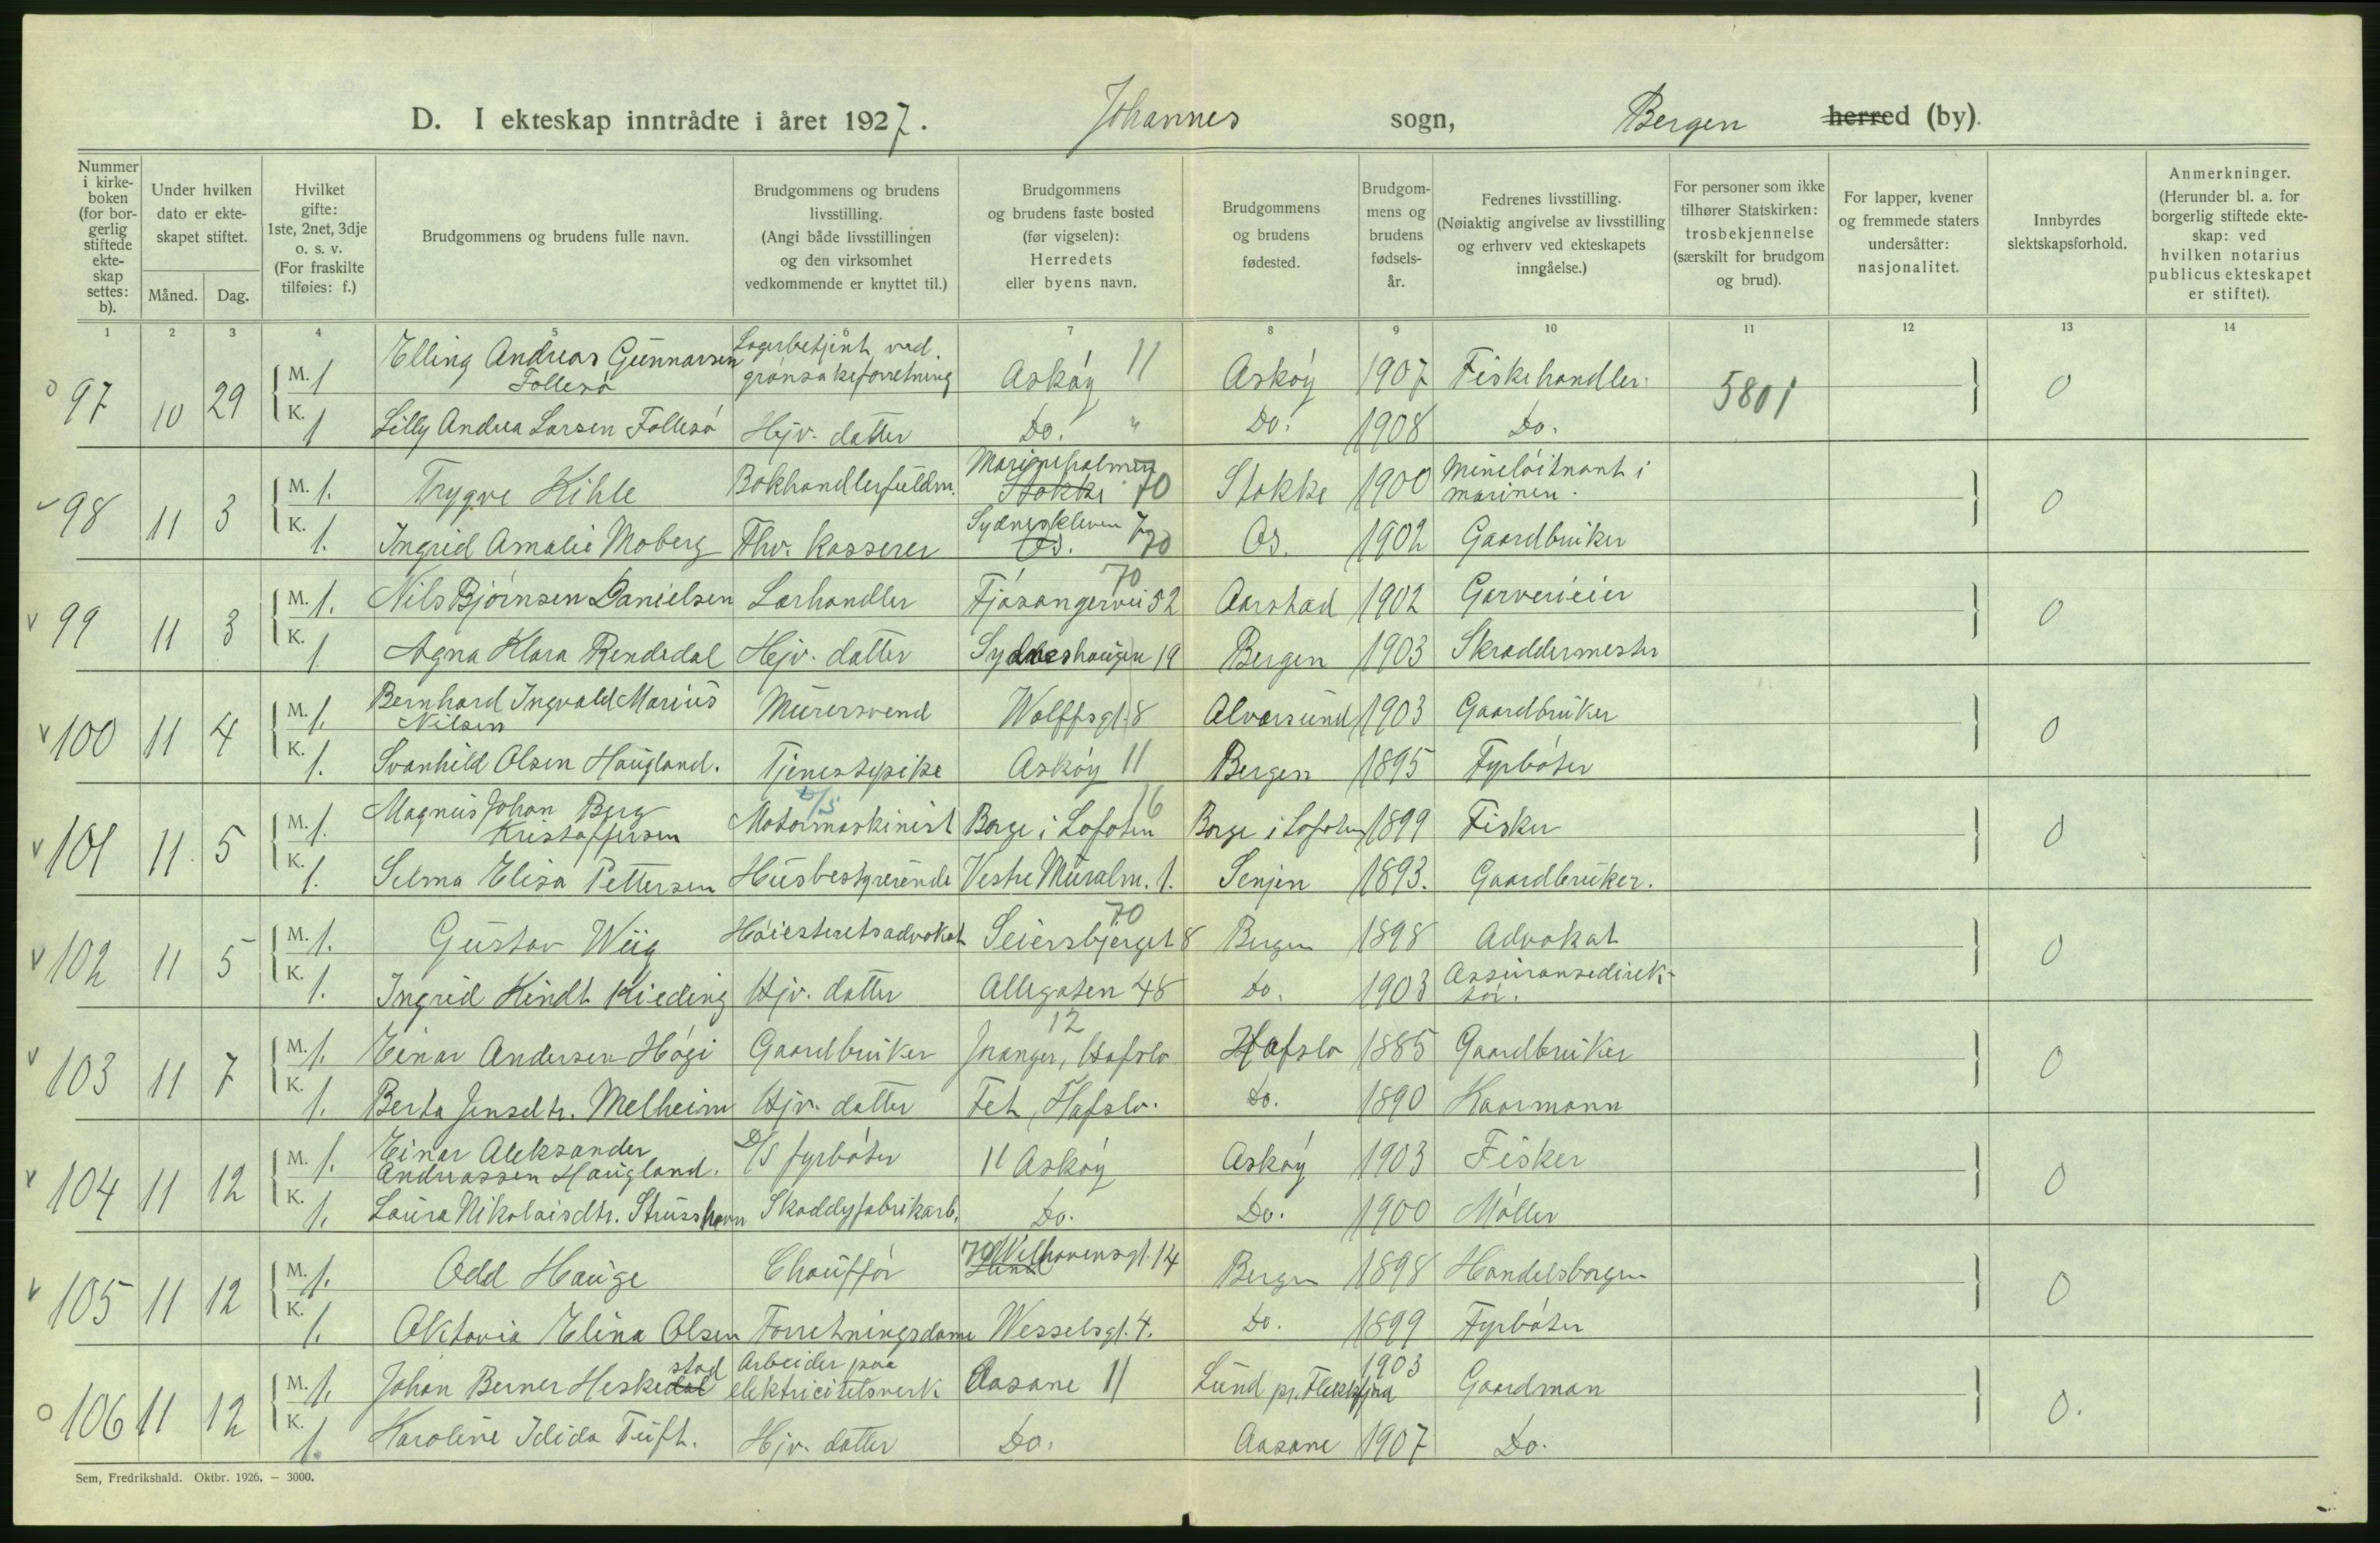 D. I ekteskap inntrådte i året 1927. Johannes sogn, Bergen herred (by).
Nummer i kirke-boken (for bor-gerlig stiftede ekte-skap settes: b).
Under hvilken dato er ekte-skapet stiftet.
Måned. Dag.
Hvilket gifte: 1ste, 2net, 3dje o. s. v. (For fraskilte tilføies: f.)
Brudgommens og brudens fulle navn.
Brudgommens og brudens livsstilling. (Angi både livsstillingen og den virksomhet vedkommende er knyttet til.)
Brudgommens og brudens faste bosted (før vigselen): Herredets eller byens navn.
Brudgommens og brudens fødested.
Brudgom-mens og brudens fødsels-år.
Fedrenes livsstilling. (Nøiaktig angivelse av livsstilling og erhverv ved ekteskapets inngåelse.)
For personer som ikke tilhører Statskirken: trosbekjennelse (særskilt for brudgom og brud).
For lapper, kvener og fremmede staters undersåtter: nasjonalitet.
Innbyrdes slektskapsforhold.
Anmerkninger. (Herunder bl. a. for borgerlig stiftede ekte-skap: ved hvilken notarius publicus ekteskapet er stiftet).
1 2 3 4 5 6 7 8 9 10 11 12 13 14
97 10 29 M. 1 Elling Andreas Gunnarsen Follesö Lagerbetjent ved grönsakeforretning Asköy 11 Asköy 1907 Fiskehandler. 5801 0
K. 1 Lilly Andrea Larsen Follesö Hjv. datter Do. " Do. 1908 Do.
98 11 3 M. 1. Trygve Kihle Bokhandlerfuldm. Marineholmen Stokke 70 Stokke 1900 Mineløitnant i marinen. 0
K. 1. Ingrid Amalie Moberg Fhv. kasserer Sydneskleven 7 Os. 70 Os. 1902 Gaardbruker
99 11 3 M. 1. Nils Bjørnsen Danielsen Lærhandler 70 Fjösangervei 52 Aarstad 1902 Garverieier 0
K. 1 Agna Klara Rendedal Hjv. datter Sydneshaugen 19 Bergen 1903 Skræddermester
100 11 4 M. 1. Bernhard Ingvald Marius Nilsen Murersvend Wolffsgt. 8 Alversund 1903 Gaardbruker 0
K. 1. Svanhild Olsen Haugland. Tjenestepike Asköy 11 Bergen 1895 Fyrböter
101 11 5 M. 1. Magnus Johan Berg Kristoffersen D/S Motormaskinist Borge i Lofoten 16 Borge i Lofoten 1899 Fisker 0
K. 1. Selma Elisa Pettersen Husbestyrerinde Vestre Muralm. 1. Senjen 1893. Gaardbruker.
102 11 5 M. 1. Gustav Wiig Höiesteretsadvokat 70 Seiersbjerget 8 Bergen 1898 Advokat 0
K. 1. Ingrid Kindt Kieding Hjv. datter Allegaten 48 Do. 1903 Assuransedirek-tör.
103 11 7 M. 1. Einar Andersen Högi Gaardbruker 12 Joranger, Hafslo Hafslo 1885 Gaardbruker 0
K. 1. Berta Jensdtr. Melheim Hjv. datter Fet, Hafslo. Do. 1890 Kaarmann
104 11 12 M. 1. Einar Aleksander Andreassen Haugland. D/S fyrböter 11 Asköy Asköy 1903 Fisker 0
K. 1. Laura Nikolaisdtr. Strusshavn Skoddyfabrikarb. Do. Do. 1900 Möller
105 11 12 M. 1. Odd Hauge Chaufför 70 Welhavensgt. 14 Bergen 1898 Handelsborger 0
K. 1. Oktavia Elina Olsen Forretningsdame Wesselsgt. 4. Do. 1899 Fyrböter
106 11 12 M. 1. Johan Berner Heskestad Arbeider paa elektricitetsverk Aasane 11 Lund pr. Flekkefjord 1903 Gaardman 0.
K. 1. Karoline Idida Tuft. Hjv. datter Do. Aasane 1907 Do.
Sem, Fredrikshald. Oktbr. 1926. — 3000.